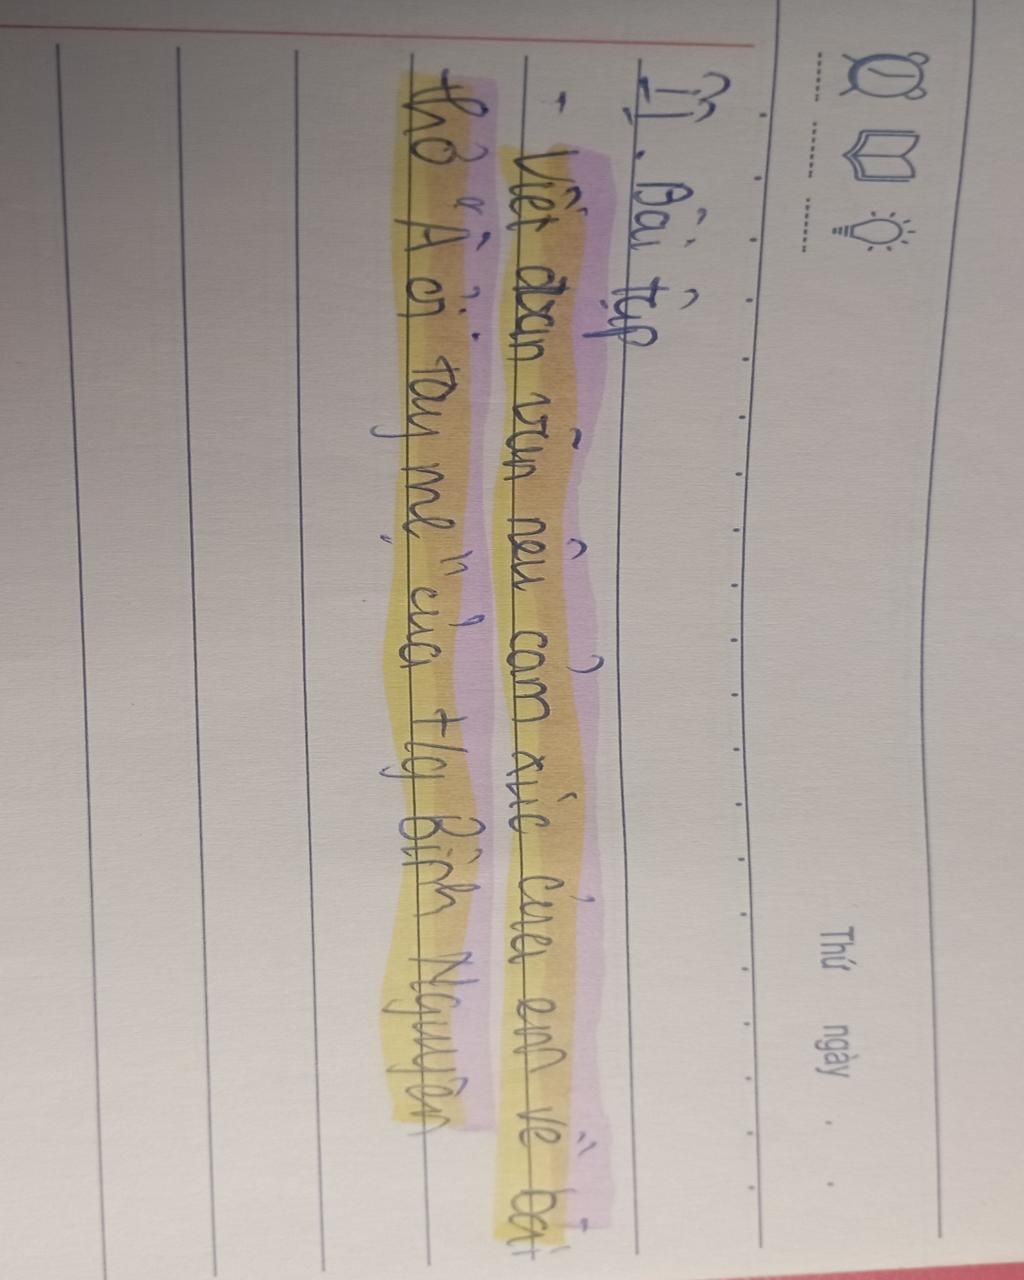 Thứ ngày
II. Bài tập
- Viết đoạn văn nêu cảm xúc của em về bài
thơ "À ơi tay mẹ" của t/g Bình Nguyên